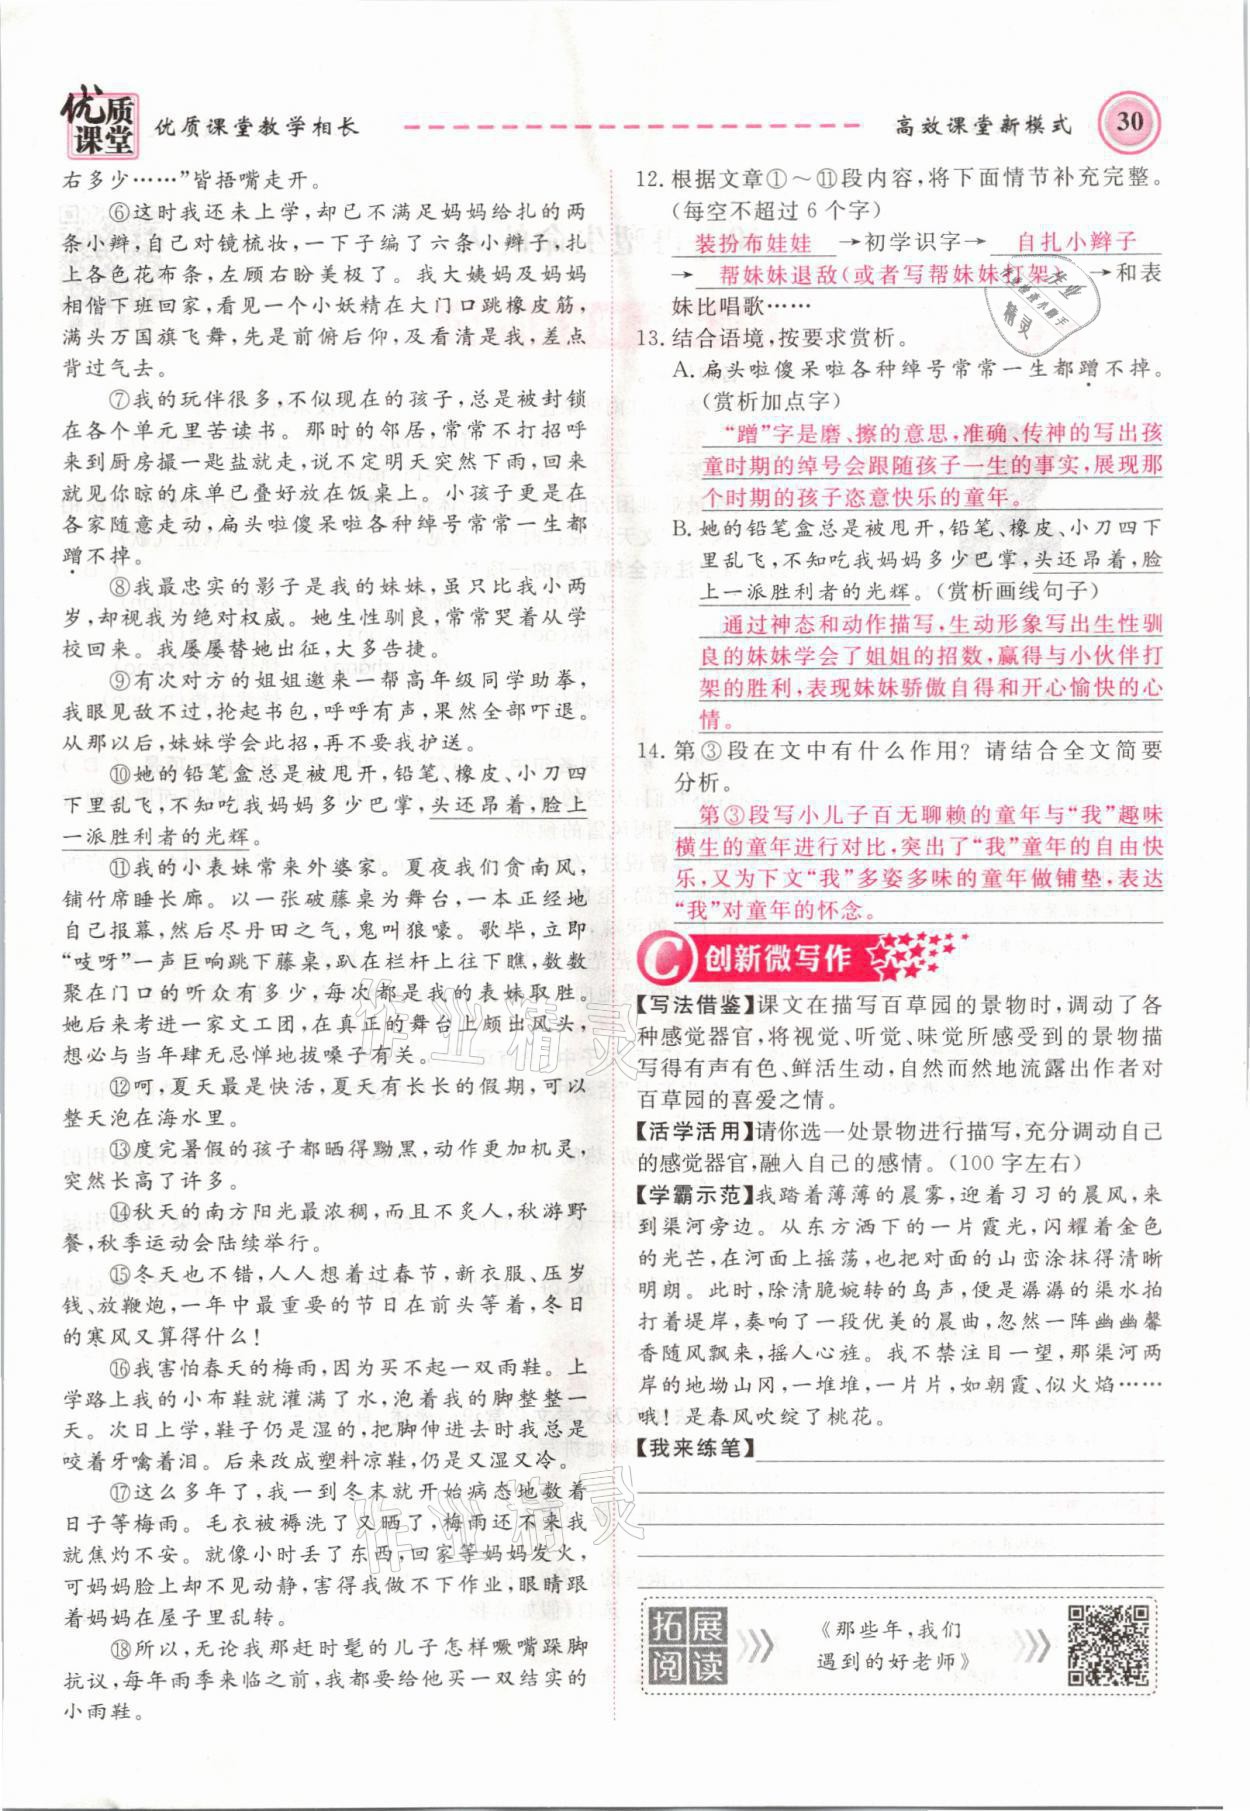 优质课堂
优质课堂教学相长
高效课堂新模式
30
右多少……”皆捂嘴走开。
⑥这时我还未上学，却已不满足妈妈给扎的两
条小辫，自己对镜梳妆，一下子编了六条小辫子，扎
上各色花布条，左顾右盼美极了。我大姨妈及妈妈
相偕下班回家，看见一个小妖精在大门口跳橡皮筋，
满头万国旗飞舞，先是前俯后仰，及看清是我，差点
背过气去。
⑦我的玩伴很多，不似现在的孩子，总是被封锁
在各个单元里苦读书。那时的邻居，常常不打招呼
来到厨房撮一匙盐就走，说不定明天突然下雨，回来
就见你晾的床单已叠好放在饭桌上。小孩子更是在
各家随意走动，扁头啦傻呆啦各种绰号常常一生都
蹭不掉。
⑧我最忠实的影子是我的妹妹，虽只比我小两
岁，却视我为绝对权威。她生性驯良，常常哭着从学
校回来。我屡屡替她出征，大多告捷。
⑨有次对方的姐姐邀来一帮高年级同学助拳，
我眼见敌不过，抡起书包，呼呼有声，果然全部吓退。
从那以后，妹妹学会此招，再不要我护送。
⑩她的铅笔盒总是被甩开，铅笔、橡皮、小刀四下
里乱飞，不知吃我妈妈多少巴掌，头还昂着，脸上
一派胜利者的光辉。
⑪我的小表妹常来外婆家。夏夜我们贪南风，
铺竹席睡长廊。以一张破藤桌为舞台，一本正经地
自己报幕，然后尽丹田之气，鬼叫狼嚎。歌毕，立即
“吱呀”一声巨响跳下藤桌，趴在栏杆上往下瞧，数数
聚在门口的听众有多少，每次都是我的表妹取胜。
她后来考进一家文工团，在真正的舞台上颇出风头，
想必与当年肆无忌惮地拔嗓子有关。
⑫呵，夏天最是快活，夏天有长长的假期，可以
整天泡在海水里。
⑬度完暑假的孩子都晒得黝黑，动作更加机灵，
突然长高了许多。
⑭秋天的南方阳光最浓稠，而且不炙人，秋游野
餐，秋季运动会陆续举行。
⑮冬天也不错，人人想着过春节，新衣服、压岁
钱、放鞭炮，一年中最重要的节日在前头等着，冬日
的寒风又算得什么！
⑯我害怕春天的梅雨，因为买不起一双雨鞋。上
学路上我的小布鞋就灌满了水，泡着我的脚整整一
天。次日上学，鞋子仍是湿的，把脚伸进去时我总是
咬着牙噙着泪。后来改成塑料凉鞋，仍是又湿又冷。
⑰这么多年了，我一到冬末就开始病态地数着
日子等梅雨。毛衣被褥洗了又晒了，梅雨还不来我
就焦灼不安。就像小时丢了东西，回家等妈妈发火，
可妈妈脸上却不见动静，害得我做不下作业，眼睛跟
着妈妈在屋子里乱转。
⑱所以，无论我那赶时髦的儿子怎样噘嘴跺脚
抗议，每年雨季来临之前，我都要给他买一双结实的
小雨鞋。
12. 根据文章①～⑪段内容，将下面情节补充完整。
（每空不超过 6 个字）
装扮布娃娃→初学识字→自扎小辫子
→帮妹妹退敌(或者写帮妹妹打架)→和表
妹比唱歌……
13. 结合语境，按要求赏析。
A. 扁头啦傻呆啦各种绰号常常一生都蹭不掉。
（赏析加点字）
“蹭”字是磨、擦的意思，准确、传神的写出孩
童时期的绰号会跟随孩子一生的事实，展现那
个时期的孩子恣意快乐的童年。
B. 她的铅笔盒总是被甩开，铅笔、橡皮、小刀四下
里乱飞，不知吃我妈妈多少巴掌，头还昂着，脸
上一派胜利者的光辉。（赏析画线句子）
通过神态和动作描写，生动形象写出生性驯
良的妹妹学会了姐姐的招数，赢得与小伙伴打
架的胜利，表现妹妹骄傲自得和开心愉快的心
情。
14. 第③段在文中有什么作用？请结合全文简要
分析。
第③段写小儿子百无聊赖的童年与“我”趣味
横生的童年进行对比，突出了“我”童年的自由快
乐，又为下文“我”多姿多味的童年做铺垫，表达
“我”对童年的怀念。
C 创新微写作
【写法借鉴】课文在描写百草园的景物时，调动了各
种感觉器官，将视觉、听觉、味觉所感受到的景物描
写得有声有色、鲜活生动，自然而然地流露出作者对
百草园的喜爱之情。
【活学活用】请你选一处景物进行描写，充分调动自己
的感觉器官，融入自己的感情。（100 字左右）
【学霸示范】我踏着薄薄的晨雾，迎着习习的晨风，来
到渠河旁边。从东方洒下的一片霞光，闪耀着金色
的光芒，在河面上摇荡，也把对面的山峦涂抹得清晰
明朗。此时，除清脆婉转的鸟声，便是潺潺的渠水拍
打着堤岸，奏响了一段优美的晨曲，忽然一阵幽幽馨
香随风飘来，摇人心旌。我不禁注目一望，那渠河两
岸的地坳山冈，一堆堆，一片片，如朝霞、似火焰……
哦！是春风吹绽了桃花。
【我来练笔】
拓展
阅读
《那些年，我们
遇到的好老师》
作业精灵
作业精灵